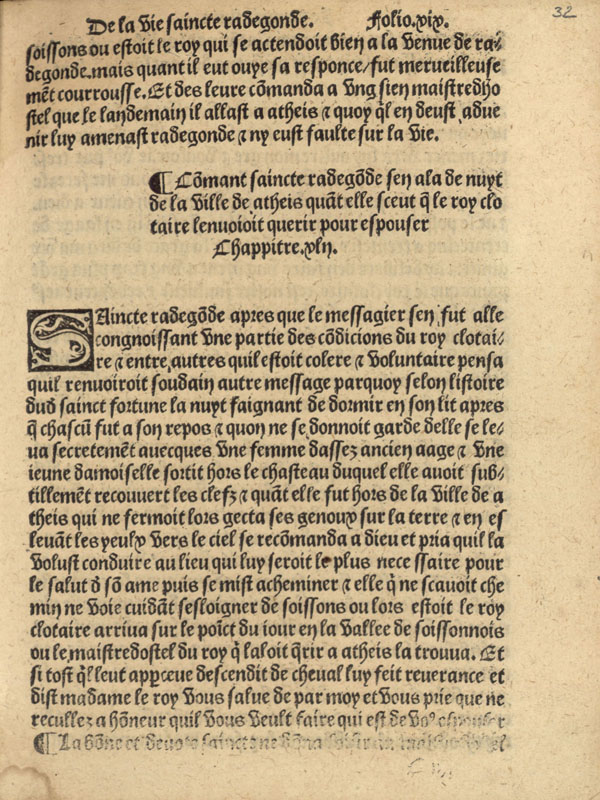 32
De la vie saincte radegonde. Folio.xix.
soissons ou estoit le roy qui se actendoit bien a la venue de ra⸗
degonde.mais quant il eut ouye sa responce/fut merveilleuse
mẽt courrousse. Et des leure cõmanda a vng sien maistredho
stel que le landemain il allast a atheis ⁊ quoy q̃l en deust adue
nir luy amenast radegonde ⁊ ny eust faulte sur la vie.
¶ Cõmant saincte radegõde sen ala de nuyt
de la ville de atheis quãt elle sceut q̃ le roy clo
taire lenuoioit querir pour espouser
Chappitre.xlii.
SAincte radegõde apres que le messagier sen fut alle
congnoissant vne partie des cõdicions du roy clotai⸗
re ⁊ entre autres quil estoit colere ⁊ voluntaire pensa
quil renuoiroit soudain autre message parquoy selon listoire
dud sainct fortune la nuyt faignant de dormir en son lit apres
q̃ chascũ fut a son repos ⁊ quon ne se donnoit garde delle se le⸗
ua secretemẽt auecques vne femme dassez ancien aage ⁊ vne
ieune damoiselle sortit hors le chasteau duquel elle auoit sub⸗
tillemẽt recouvert les clefz ⁊ quãt elle fut hors de la ville de a
theis qui ne fermoit lors gecta ses genoux sur la terre ⁊ en es
leuãt les yeulx vers le ciel se recõmanda a dieu et pria quil la
volust conduire au lieu qui luy seroit le plus nece ssaire pour
le salut d sõ ame puis se mist acheminer ⁊ elle q̃ ne scauoit che
min ne voie cuidãt sesloigner de soissons ou lors estoit le roy
clotaire arriua sur le poĩct du iour en la vallee de soissonnois
ou le maistredostel du roy q̃ laloit q̃rir a atheis la trouua. Et
si tost q̃l leut apperceue descendit de cheual luy feit reuerance et
dist madame le roy vous salue de par moy et vous prie que ne
recullez a hõneur quil vous veult faire qui est de vo⁹ espouser
¶ La bõne et deuote saincte ne